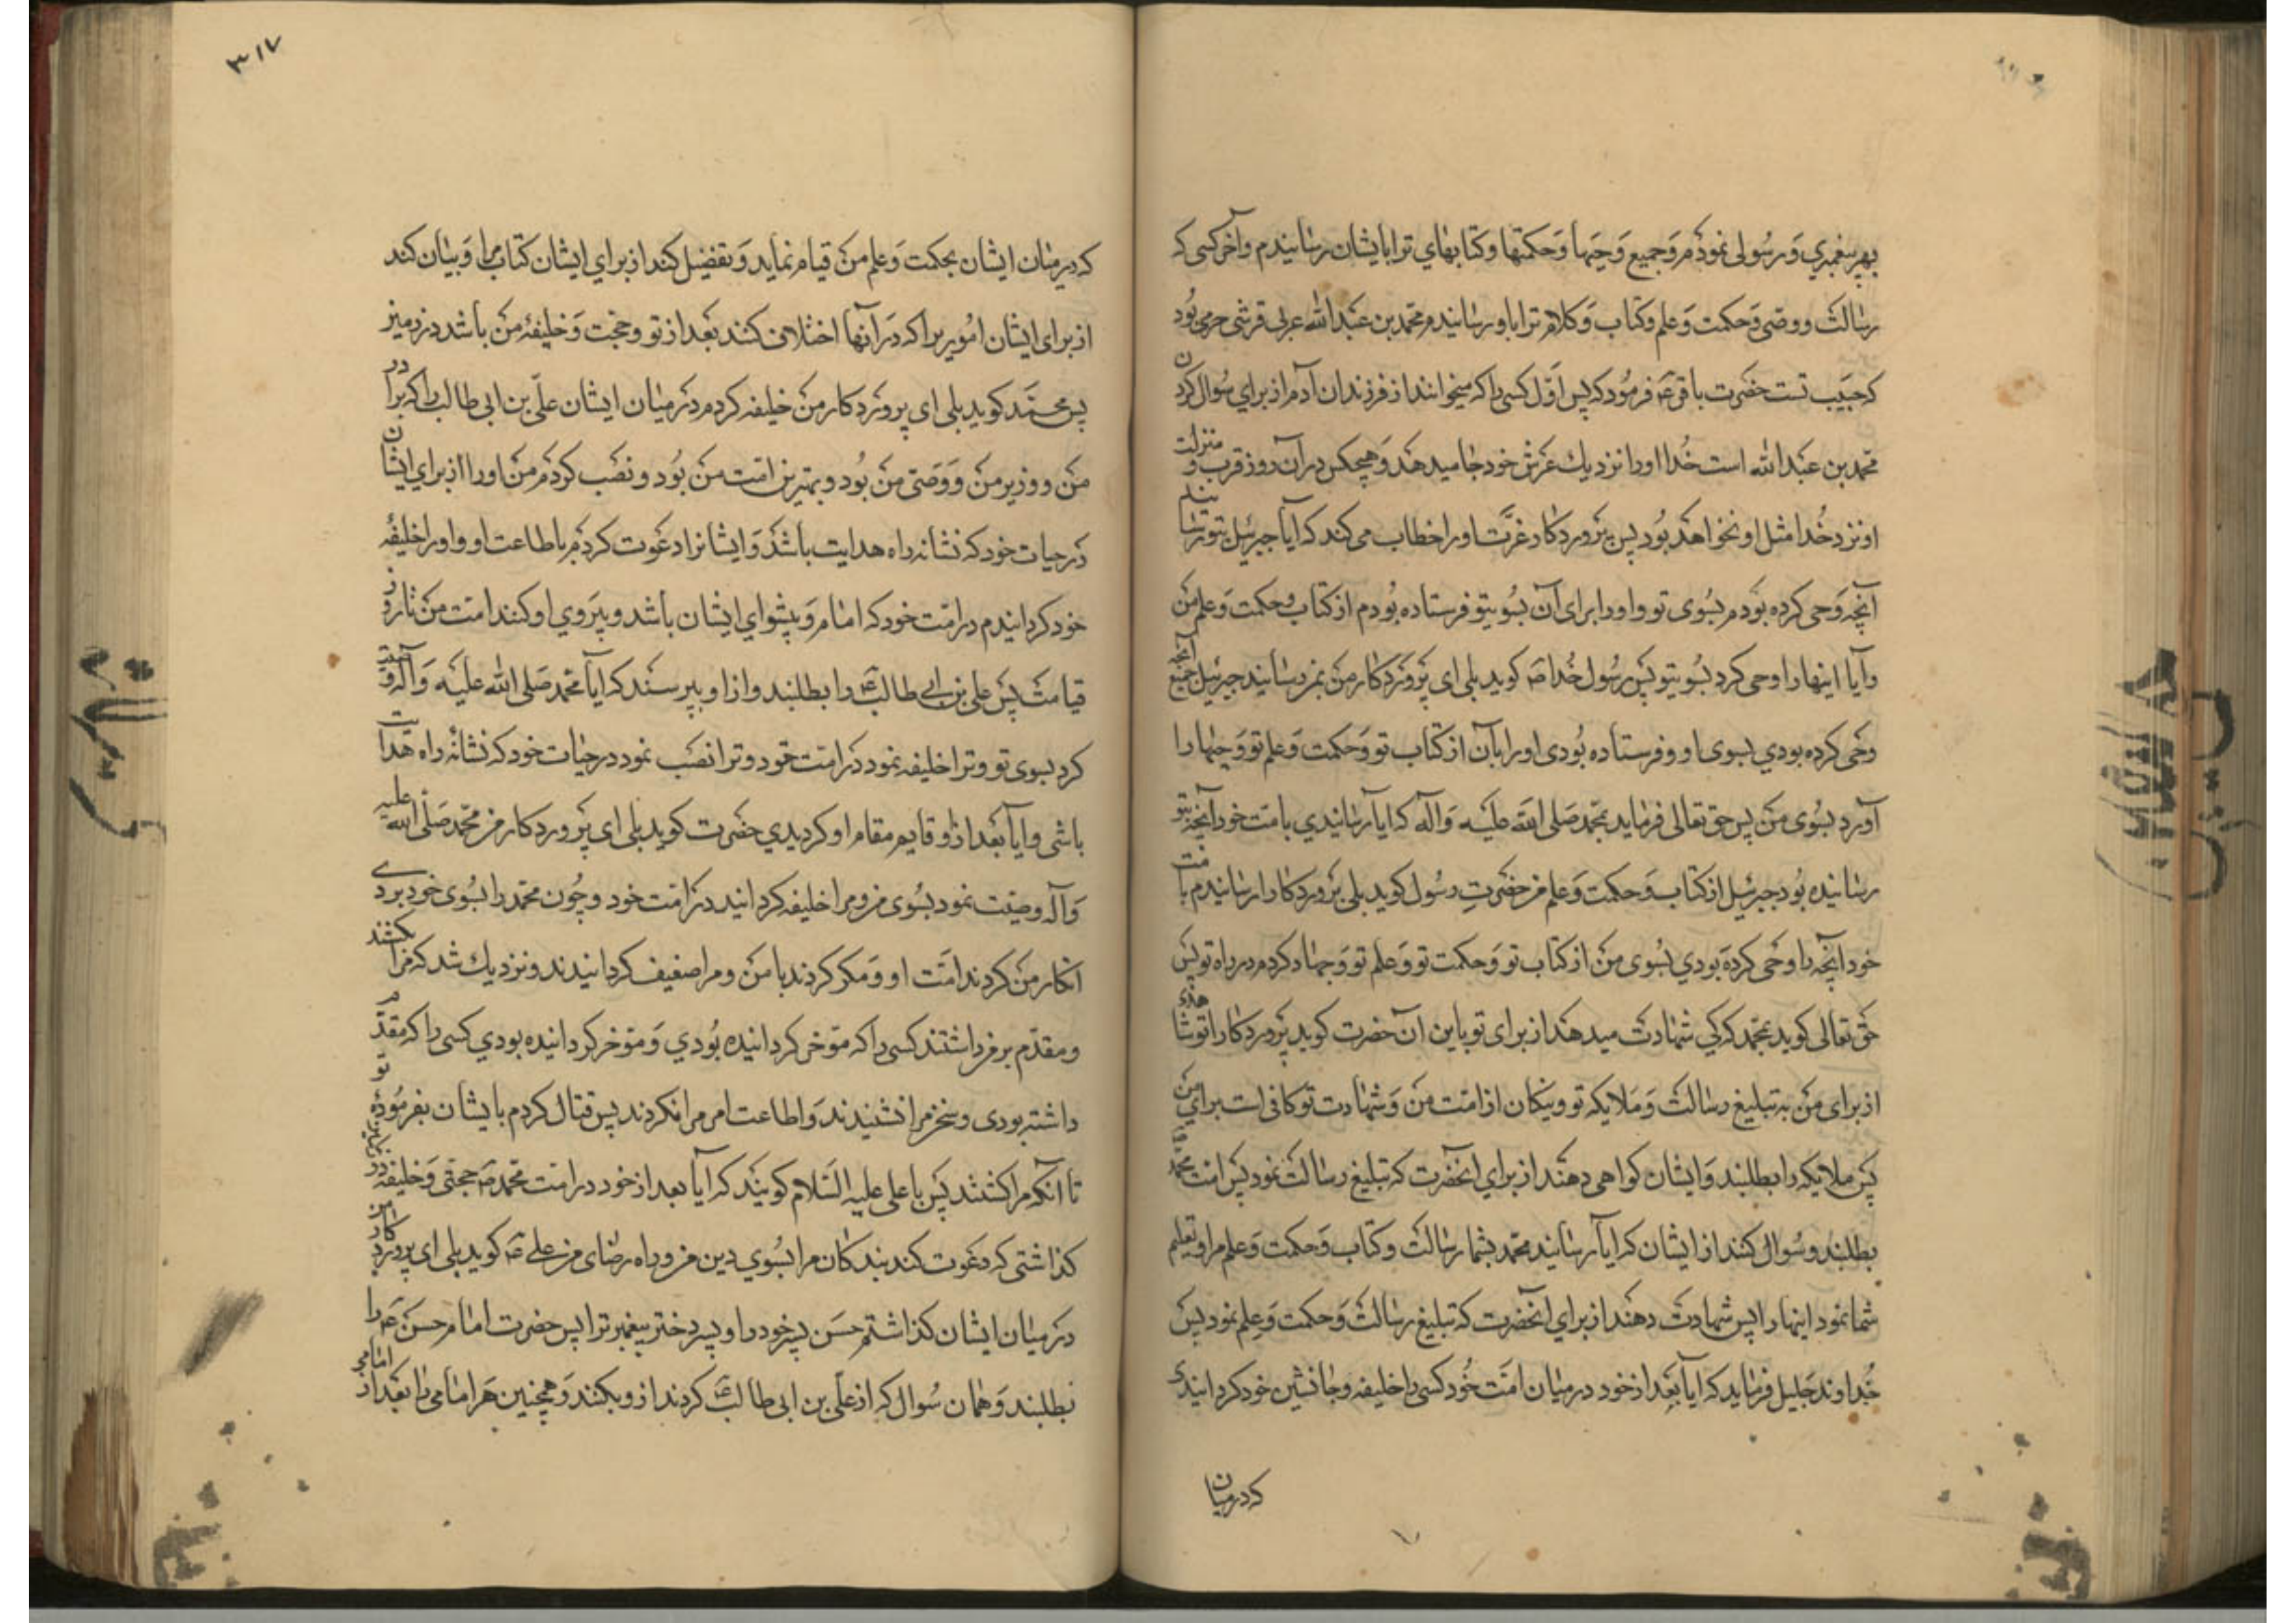 بهر پیغمبری و رسولی نمودم و جمیع وحیها و حکمتها و کتابهای ترا بایشان رسانیدم و آخر کسی که
رسالت و وصی و حکمت و علم و کتاب و کلام ترا باو رسانیدم محمد بن عبدالله عربی قرشی حرمی بود
که حبیب تست حضرت باقر ع فرمود که پس اول کسی را که میخوانند از فرزندان آدم از برای سوال کردن
محمد بن عبدالله است خدا او را نزدیك عرش خود جا میدهد و هیچکس در آن روز قرب و منزلت
او نزد خدا مثل او نخواهد بود پس پروردکار عزت او را خطاب می کند که ایا جبرئیل بتو رسانید
آنچه وحی کرده بودم بسوی تو و او را برای آن بسوی تو فرستاده بودم از کتاب و حکمت و علم من
و آیا اینها را وحی کرد بسوی تو پس رسول خدا ص کوید بلی ای پروردکار من بمن رسانید جبرئیل جمیع آنچه
وحی کرده بودی بسوی او و فرستاده بودی او را بآن از کتاب تو و حکمت و علم تو و وحیها را
آورد بسوی من پس حق تعالی فرماید بمحمد صلی الله علیه و آله که ایا رسانیدی بامت خود آنچه بتو
رسانیده بود جبرئیل از کتاب و حکمت و علم من حضرت رسول کوید بلی پروردکارا رسانیدم بامت
خود آنچه را وحی کرده بودی بسوی من از کتاب تو و حکمت تو و علم تو و جهاد کردم در راه تو پس
حق تعالی کوید بمحمد که کی شهادت میدهد از برای تو باین آن حضرت کوید پروردکارا تو شاهدی
از برای من به تبلیغ رسالت و ملایکه تو و نیکان از امت من و شهادت تو کافی است برای من
پس ملایکه را بطلبند و ایشان کواهی دهند از برای آنحضرت که تبلیغ رسالت نمود پس امت محمد را
بطلبند و سوال کنند از ایشان که ایا رسانید محمد بشما رسالت و کتاب و حکمت و علم مرا و تعلیم
شما نمود اینها را پس شهادت دهند از برای آنحضرت که تبلیغ رسالت و حکمت و علم نمود پس
خداوند جلیل فرماید که ایا بعد از خود در میان امت خود کسی را خلیفه و جانشین خود کردانیدی
که در میان
٣١٧
که در میان ایشان بحکمت و علم من قیام نماید و تفضیل کند از برای ایشان کتاب مرا و بیان کند
از برای ایشان اموری را که در آنها اختلاف کنند بعد از تو و حجت و خلیفۀ من باشد در زمین
پس محمد کوید بلی ای پروردکار من خلیفه کردم در میان ایشان علی بن ابی طالب را که برادر
من و وزیر من و وصی من بود و بهترین امت من بود و نصب کردم من او را از برای ایشان
در حیات خود که نشانه راه هدایت باشد و ایشانرا دعوت کردم باطاعت او و او را خلیفۀ
خود کردانیدم در امت خود که امام و پیشوای ایشان باشد و پیروی او کنند امت من تا روز
قیامت پس علی بن ابی طالب ع را بطلبند و از او بپرسند که ایا محمد صلی الله علیه و آله وصیت
کرد بسوی تو و ترا خلیفه نمود در امت خود و ترا نصب نمود در حیات خود که نشانۀ راه هدایت
باشی و ایا بعد از او قایم مقام او کردیدی حضرت کوید بلی ای پروردکار من محمد صلی الله علیه
و آله وصیت نمود بسوی من و مرا خلیفه کردانید در امت خود و چون محمد را بسوی خود بردی
انکار من کردند امت او و مکر کردند با من و مرا ضعیف کردانیدند و نزدیك شد که مرا بکشند
و مقدم بر من داشتند کسی را که مؤخر کردانیده بودی و مؤخر کردانیده بودی کسی را که مقدم
داشته بودی و سخن مرا نشنیدند و اطاعت امر مرا نکردند پس قتال کردم با ایشان بفرمودۀ تو
تا آنکه مرا کشتند پس با علی علیه السلام کویند که آیا بعد از خود در امت محمد ص حجتی و خلیفه در زمین
کذاشتی که دعوت کند بندکان مرا بسوی دین من و راه رضای من علی ع کوید بلی ای پروردکار من
در میان ایشان کذاشتم حسن پسر خود را و پسر دختر پیغمبر ترا پس حضرت امام حسن ع را
بطلبند و همان سوال که از علی بن ابی طالب ع کردند از و بکنند و همچنین هر امامی را بعد از امامی